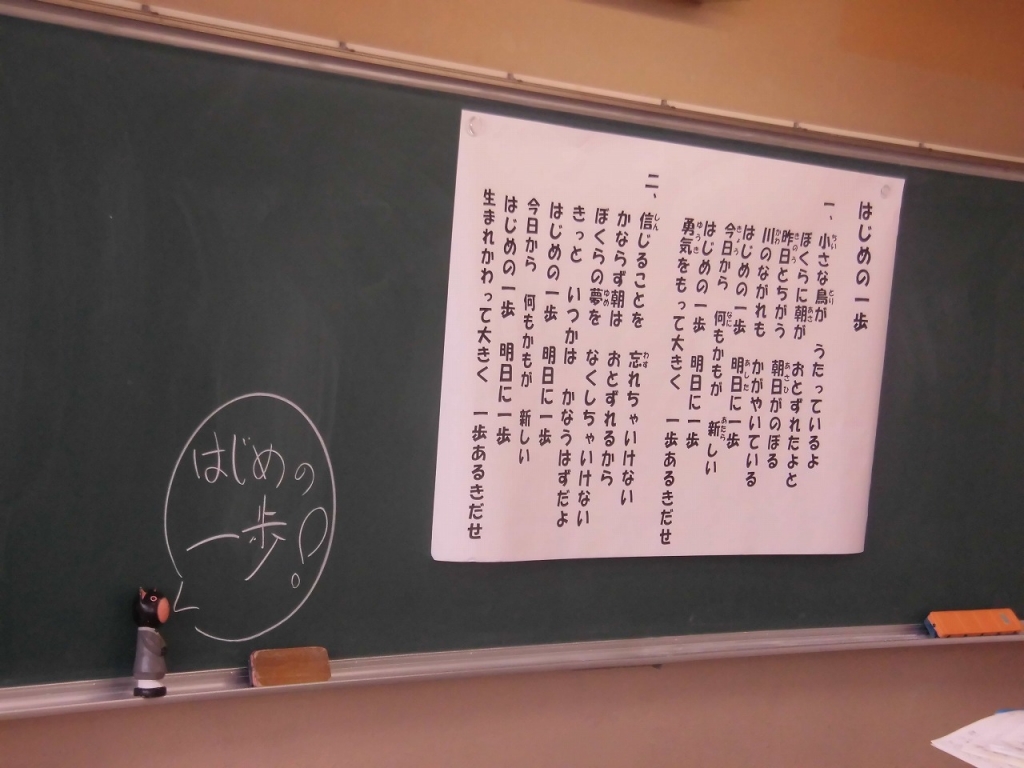 はじめの一歩
一、小さな鳥が　うたっているよ
ぼくらに朝が　おとずれたよと
昨日とちがう　朝日がのぼる
川のながれも　かがやいている
はじめの一歩　明日に一歩
今日から　何もかもが　新しい
はじめの一歩　明日に一歩
勇気をもって大きく　一歩あるきだせ
二、信じることを　忘れちゃいけない
かならず朝は　おとずれるから
ぼくらの夢を　なくしちゃいけない
きっと　いつかは　かなうはずだよ
はじめの一歩　明日に一歩
今日から　何もかもが　新しい
はじめの一歩　明日に一歩
生まれかわって大きく　一歩あるきだせ
はじめの
一歩!